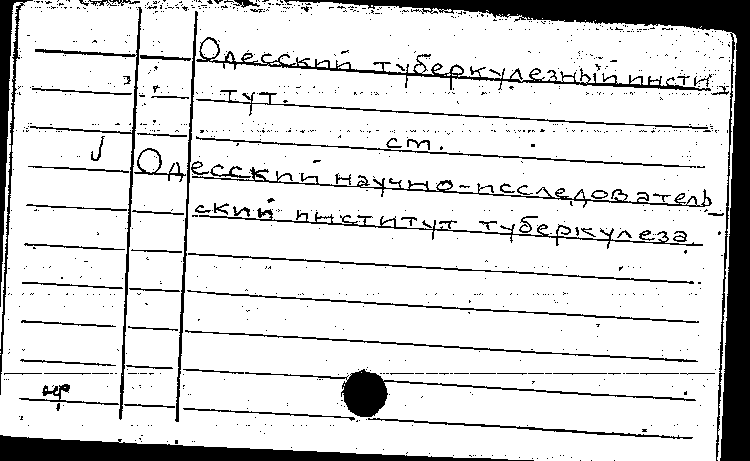 Одесский туберкулезный инсти
тут.
ст.
Одесский научно-исследователь
ский институт туберкулеза.